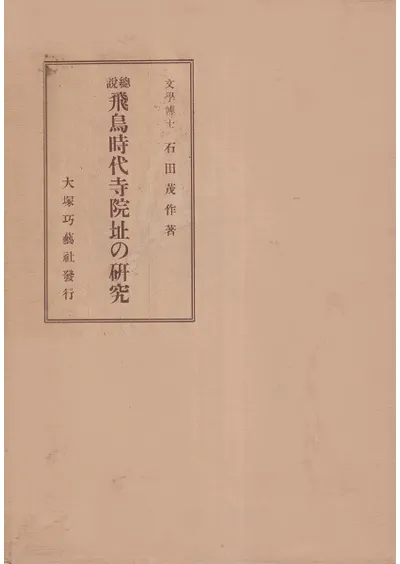 文學博士 石田茂作著
總說 飛鳥時代寺院址の研究
大塚巧藝社發行